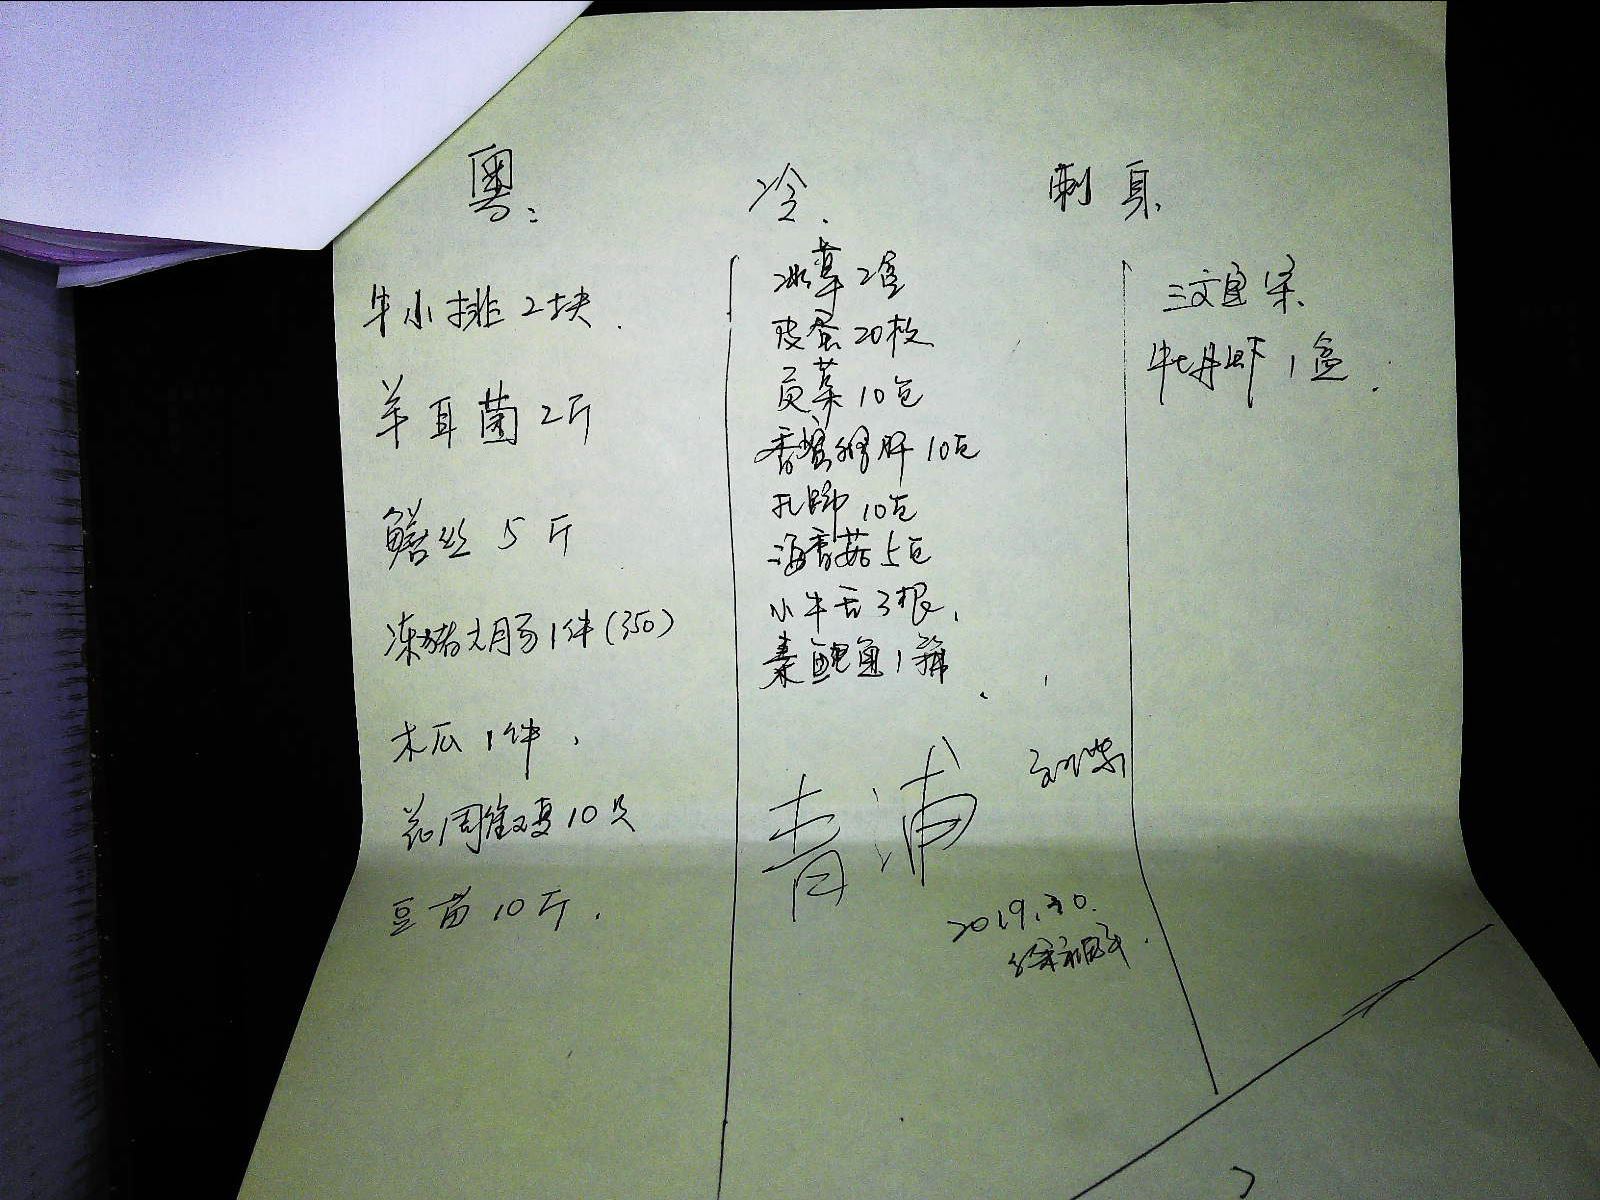 粤:
牛小排2块.
羊耳菌2斤
鳝丝5斤
冻猪大肠1件(350)
木瓜1件,
花雕鸡10只
豆苗10斤.
冷.
冰草2盒
皮蛋20枚
贡菜10包
香螺 肝10包
扎蹄10包
海香菇5包
小牛舌3根,
鲍鱼1箱
青浦
2019.
刺身
三文鱼
牡丹虾1盒.